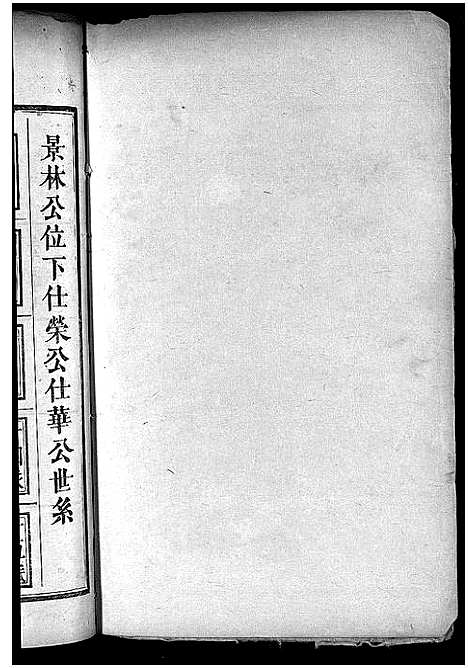 景林公位下仕榮公仕華公世系